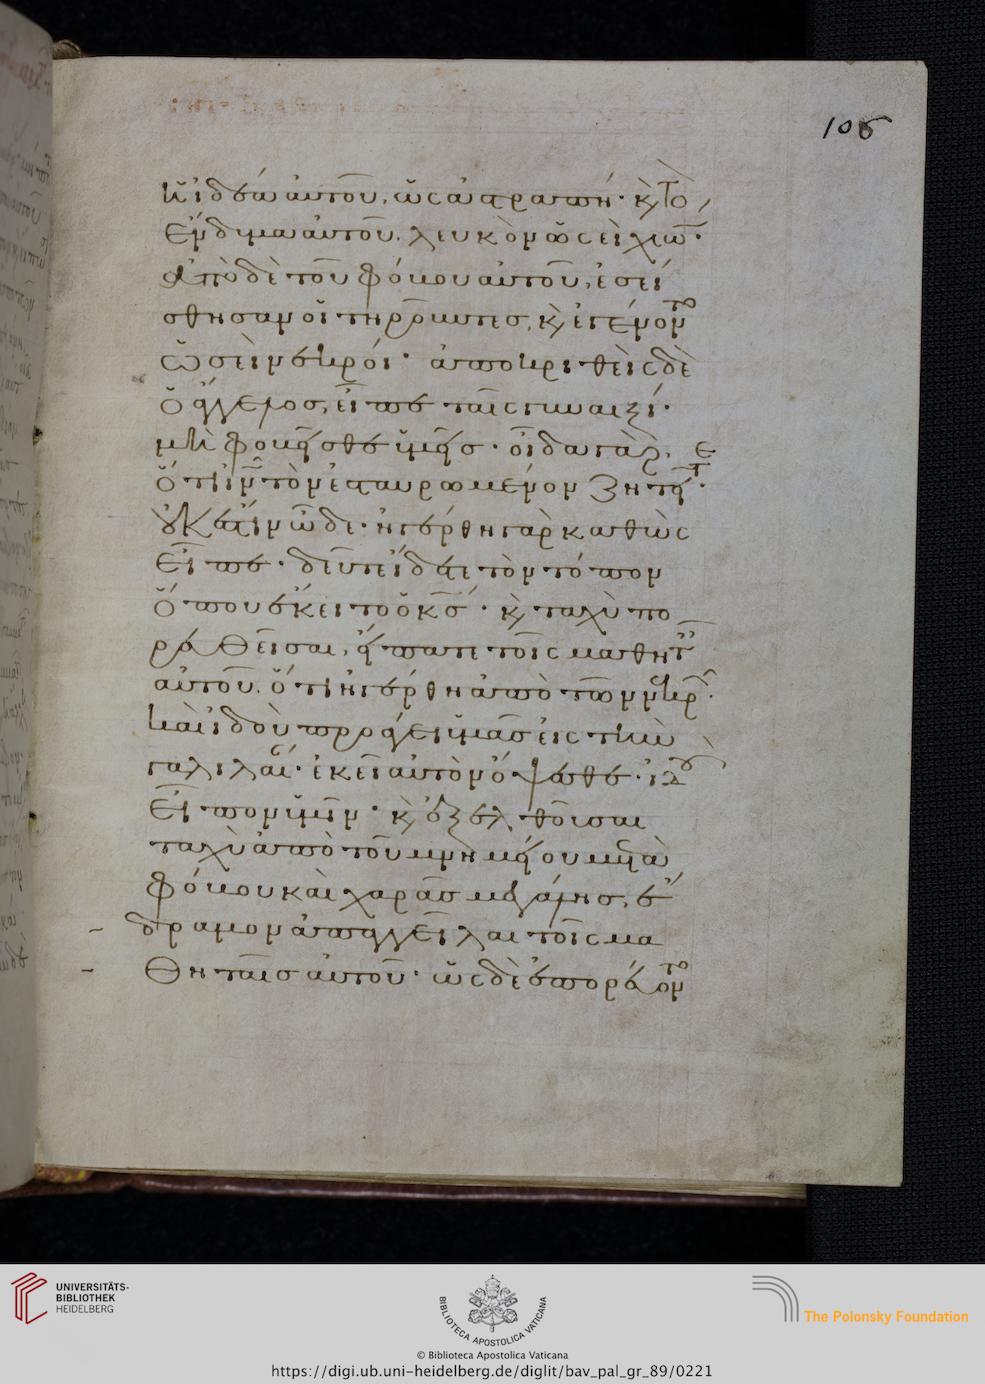 106
ἡ ἰδέα αὐτοῦ, ὡς ἀστραπή· κ, τὸ
ἔνδυμα αὐτοῦ. λευκὸν ὡσεὶ χιών·
ἀπὸ δὲ τοῦ φόβου αὐτοῦ, ἐσεί
σθησαν οἱ τηροῦντεσ, κ, ἐγένοντο
ὡσεὶ νεκροί· ἀποκριθεὶς δὲ
ὁ ἄγγελοσ, εἶπε ταῖς γυναιξί·
μὴ φοβεῖσθε ὑμεῖσ· οἶδα γὰρ,
ὅτι ἰν τὸν ἐσταυρωμένον ζητεῖτε·
οὐκ ἔστιν ὧδε· ἠγέρθη γὰρ καθὼς
εἶπε· δεῦτε ἴδετε τὸν τόπον
ὅπου ἔκειτο ὁ κσ· κ, ταχὺ πο
ρευθεῖσαι, εἴπατε τοῖς μαθητ
αὐτοῦ. ὅτι ἠγέρθη ἀπὸ τῶν νεκρ·
καὶ ἰδοὺ προάγει ὑμᾶσ εἰς τὴν
γαλιλαί· ἐκεῖ αὐτὸν ὄψεσθε· ἰδοὺ
εἶπον ὑμῖν· κ, ἐξελθοῦσαι
ταχὺ ἀπὸ τοῦ μνημείου μετὰ
φόβου καὶ χαρᾶσ μεγάλησ, ἔ
δραμον ἀπαγγεῖλαι τοῖς μα
θηταῖσ αὐτοῦ· ὡς δὲ ἐπορεύοντο
UNIVERSITÄTS-
BIBLIOTHEK
HEIDELBERG
BIBLIOTECA APOSTOLICA VATICANA
The Polonsky Foundation
© Biblioteca Apostolica Vaticana
https://digi.ub.uni-heidelberg.de/diglit/bav_pal_gr_89/0221